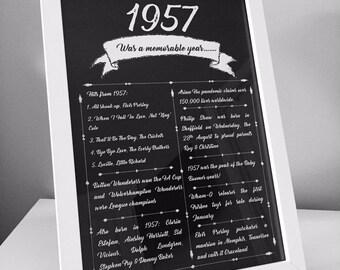 1957
Was a memorable year.......
Hits from 1957:
1. All shook up, Elvis Presley
2. When I Fall In Love, Nat 'King'
Cole
3. That'll Be The Day, The Crickets
4. Bye Bye Love, The Everly Brothers
5. Lucille, Little Richard
Bolton Wanderers won the FA Cup
and Wolverhampton Wanderers
were League champions
Also born in 1957: Gloria
Estefan, Ainsley Harriott, Sid
Vicious, Dolph Lundgren,
Stephen Fry & Danny Baker
Asian Flu pandemic claims over
150,000 lives worldwide.
Philip Shaw was born in
Sheffield on Wednesday, the
28th August to proud parents
Roy & Christine
1957 was the peak of the Baby
Boomer years!
Wham-O releases the first
Frisbee toys for sale during
January
Elvis Presley purchases a
mansion in Memphis, Tennessee
and calls it Graceland